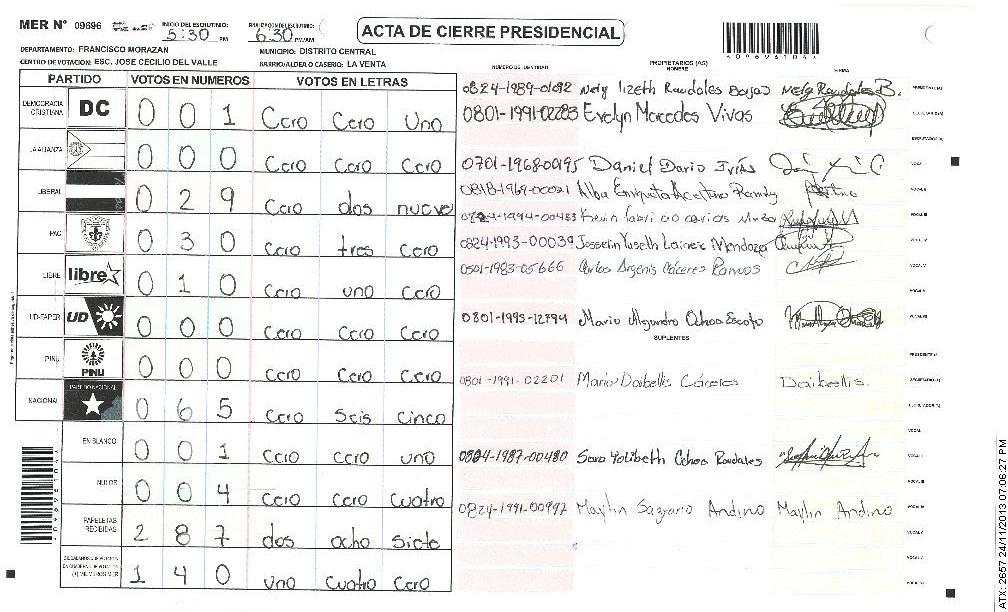 MER N° 09696 INICIO DEL ESCRUTINIO: 5:30 PM FINALIZACION DEL ESCRUTINIO: 6:30 PM/AM
ACTA DE CIERRE PRESIDENCIAL
DEPARTAMENTO: FRANCISCO MORAZAN MUNICIPIO: DISTRITO CENTRAL
CENTRO DE VOTACION: ESC. JOSE CECILIO DEL VALLE BARRIO/ALDEA O CASERIO: LA VENTA
PARTIDO VOTOS EN NUMEROS VOTOS EN LETRAS
DEMOCRACIA CRISTIANA DC 0 0 1 Cero Cero Uno
LA ALIANZA 0 0 0 Cero Cero Cero
LIBERAL 0 2 9 Cero dos nueve
PAC 0 3 0 Cero tres Cero
LIBRE libre 0 1 0 Cero uno Cero
UD-FAPER UD 0 0 0 Cero Cero Cero
PINU PINU 0 0 0 Cero Cero Cero
NACIONAL PARTIDO NACIONAL 0 6 5 Cero Seis Cinco
EN BLANCO 0 0 1 Cero cero uno
NULOS 0 0 4 Cero cero cuatro
PAPELETAS RECIBIDAS 2 8 7 dos ocho siete
1 4 0 uno cuatro Cero
NUMERO DE IDENTIDAD PROPIETARIOS (AS) NOMBRE FIRMA
0824-1989-01092 Nely Lizeth Raudales Nely Raudales B.
0801-1991-02283 Evelyn Mercedes Vivas
0701-1968-00195 Daniel Dario
0818-1969-00021 Alba Enriqueta
0824-1994-00483 Kevin
0824-1993-00039 Josselin Yaseth Lainez Mendoza
0501-1983-05666 Carlos Argenis Cáceres Ramos
0801-1993-12794 Mario Alejandro Ochoa Escoto
SUPLENTES
0801-1991-02201 Maria Daibellis Cáceres Daibellis
0824-1987-00480 Sara Yolibeth Ochoa Raudales
0824-1991-00997 Maylin Sagrario Andino Maylin Andino
ATX: 2657 24/11/2013 07:06:27 PM